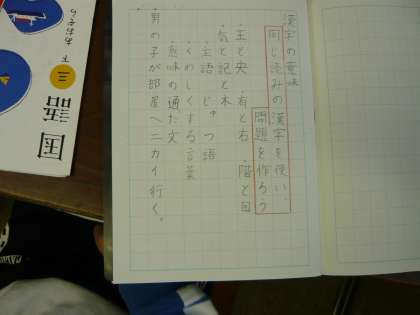 漢字の意味
同じ読みの漢字を使い
問題を作ろう
・王と央 ・有と右 ・階と回
・気と記と木
・主語 じゅつ語
・くわしくする言葉
・意味の通った文
男の子が部屋へ二カイ行く。
国語
三
下
あおぞら